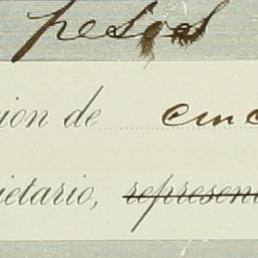 pesos
ion de cinc
ietario, represen